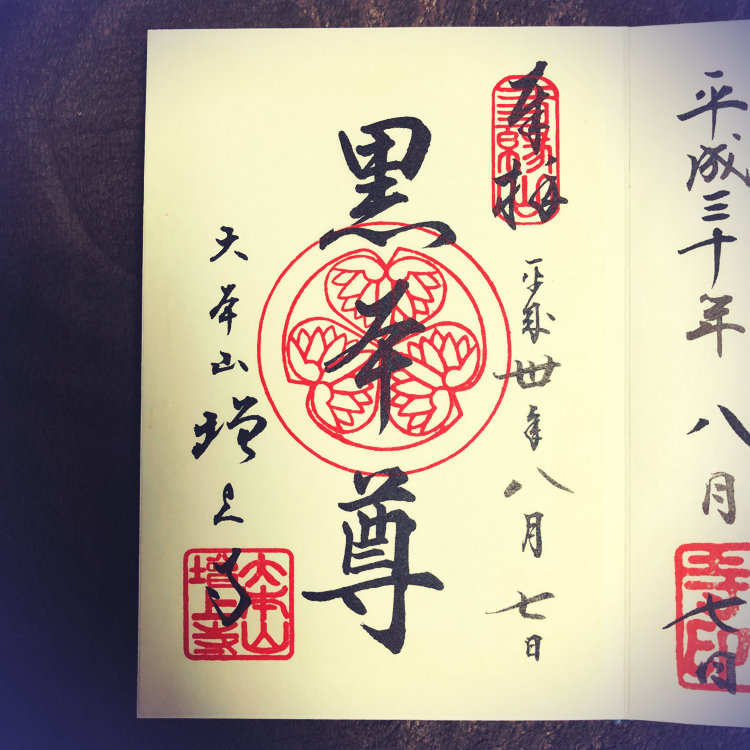 平成三十年八月七日
奉拝
三縁山
平成卅年八月七日
黒本尊
大本山増上寺
大本山
増上寺